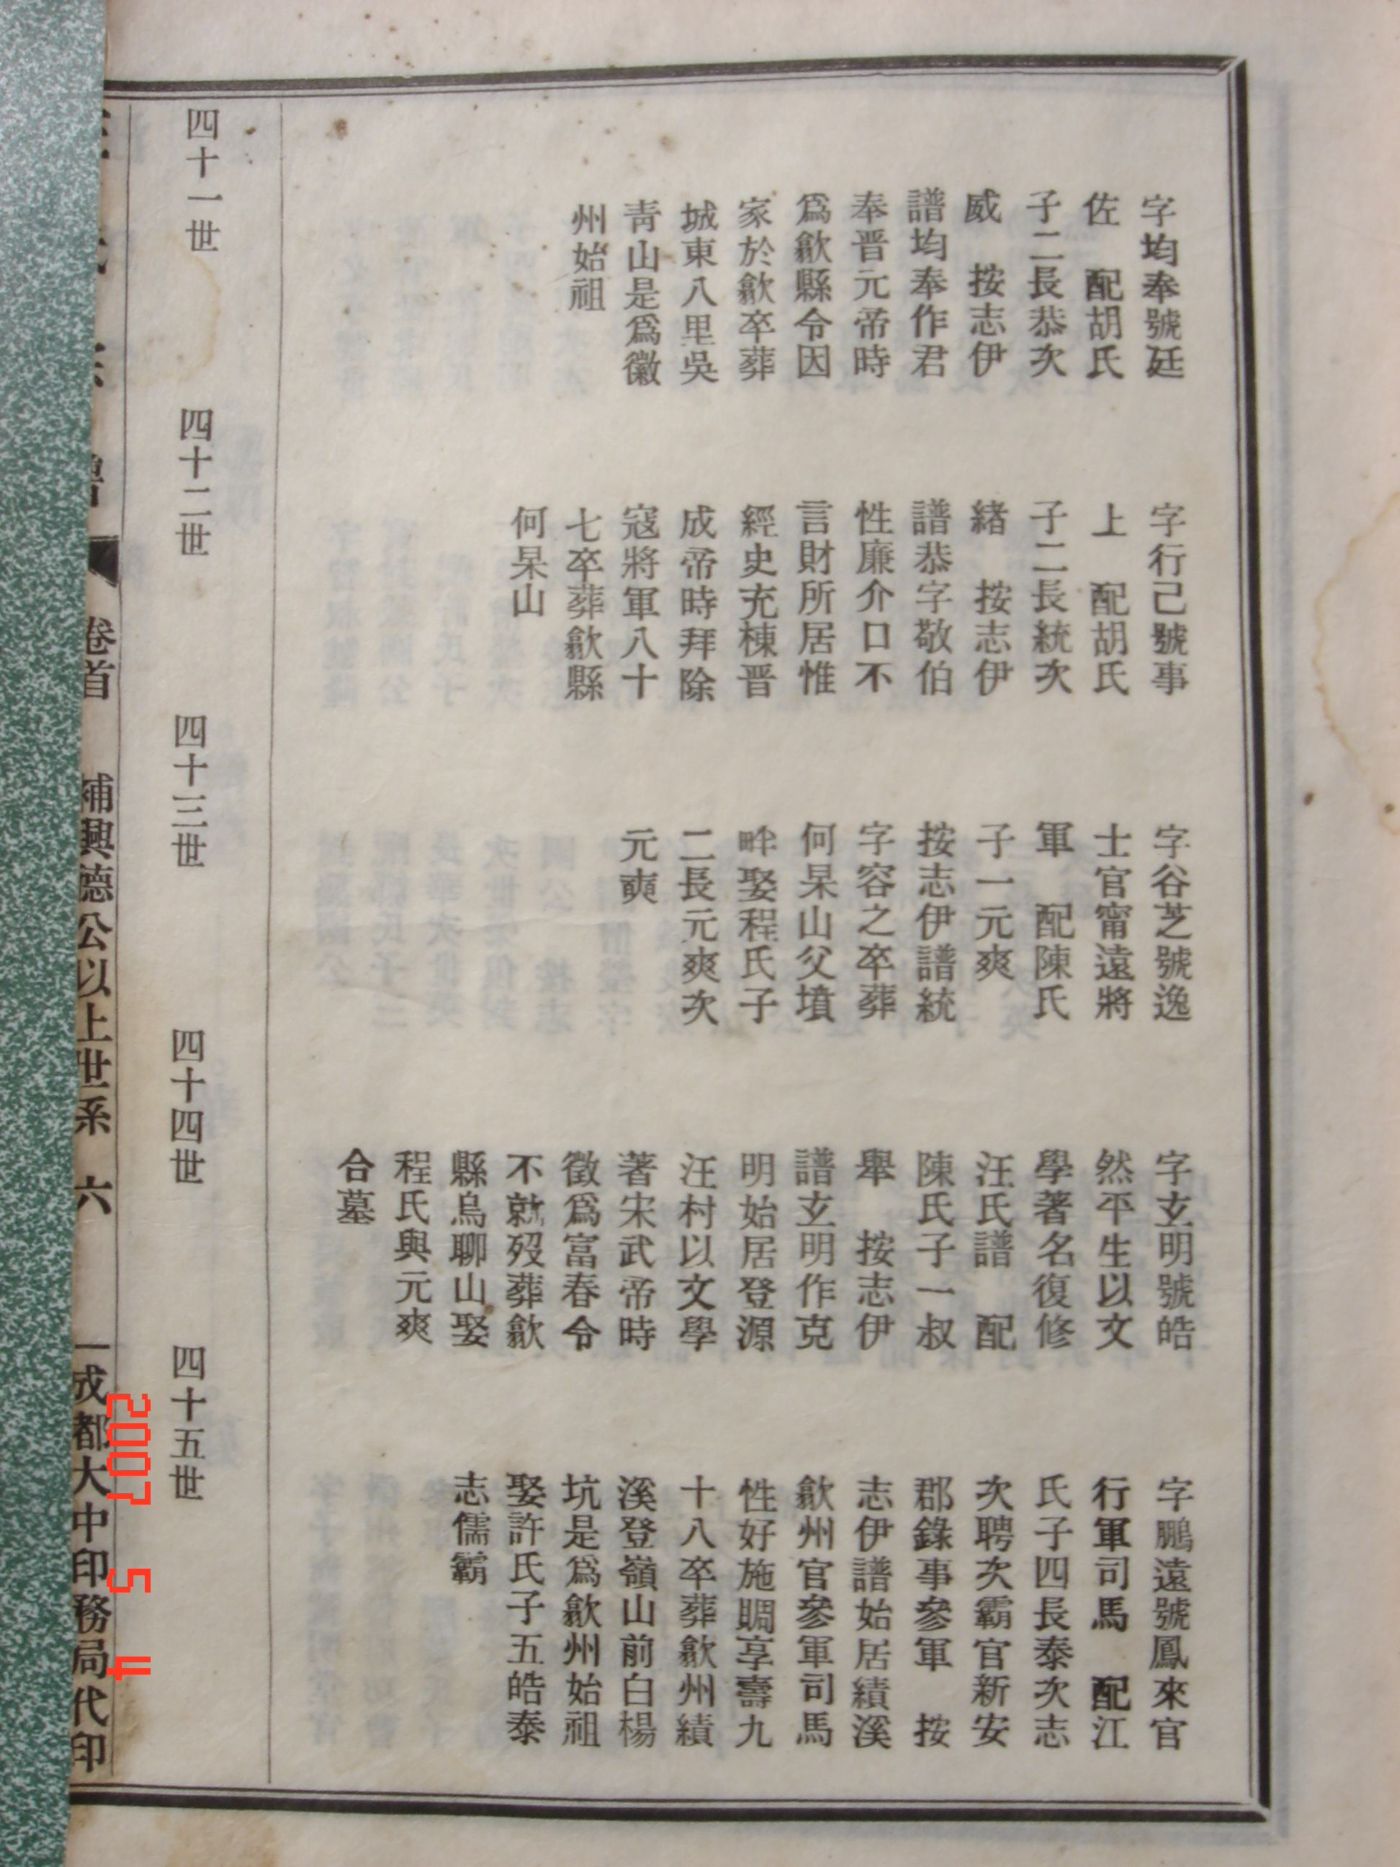 字均奉號廷
佐　配胡氏
子二長恭次
威　按志伊
譜均奉作君
奉晋元帝時
爲歙縣令因
家於歙卒葬
城東八里吳
青山是爲徽
州始祖
字行己號事
上　配胡氏
子二長統次
緒　按志伊
譜恭字敬伯
性廉介口不
言財所居惟
經史充棟晋
成帝時拜除
寇將軍八十
七卒葬歙縣
何杲山
字谷芝號逸
士官甯遠將
軍　配陳氏
子一元爽
按志伊譜統
字容之卒葬
何杲山父墳
畔娶程氏子
二長元爽次
元奭
字玄明號皓
然平生以文
學著名復修
汪氏譜　配
陳氏子一叔
舉　按志伊
譜玄明作克
明始居登源
汪村以文學
著宋武帝時
徵爲富春令
不就歿葬歙
縣烏聊山娶
程氏與元爽
合墓
字鵬遠號鳳來官
行軍司馬　配江
氏子四長泰次志
次聘次霸官新安
郡錄事參軍　按
志伊譜始居績溪
歙州官參軍司馬
性好施賙享壽九
十八卒葬歙州績
溪登嶺山前白楊
坑是爲歙州始祖
娶許氏子五皓泰
志儒霸
四十一世
四十二世
四十三世
四十四世
四十五世
卷首　補興德公以上世系　六　成都大中印務局代印
2007 5 4